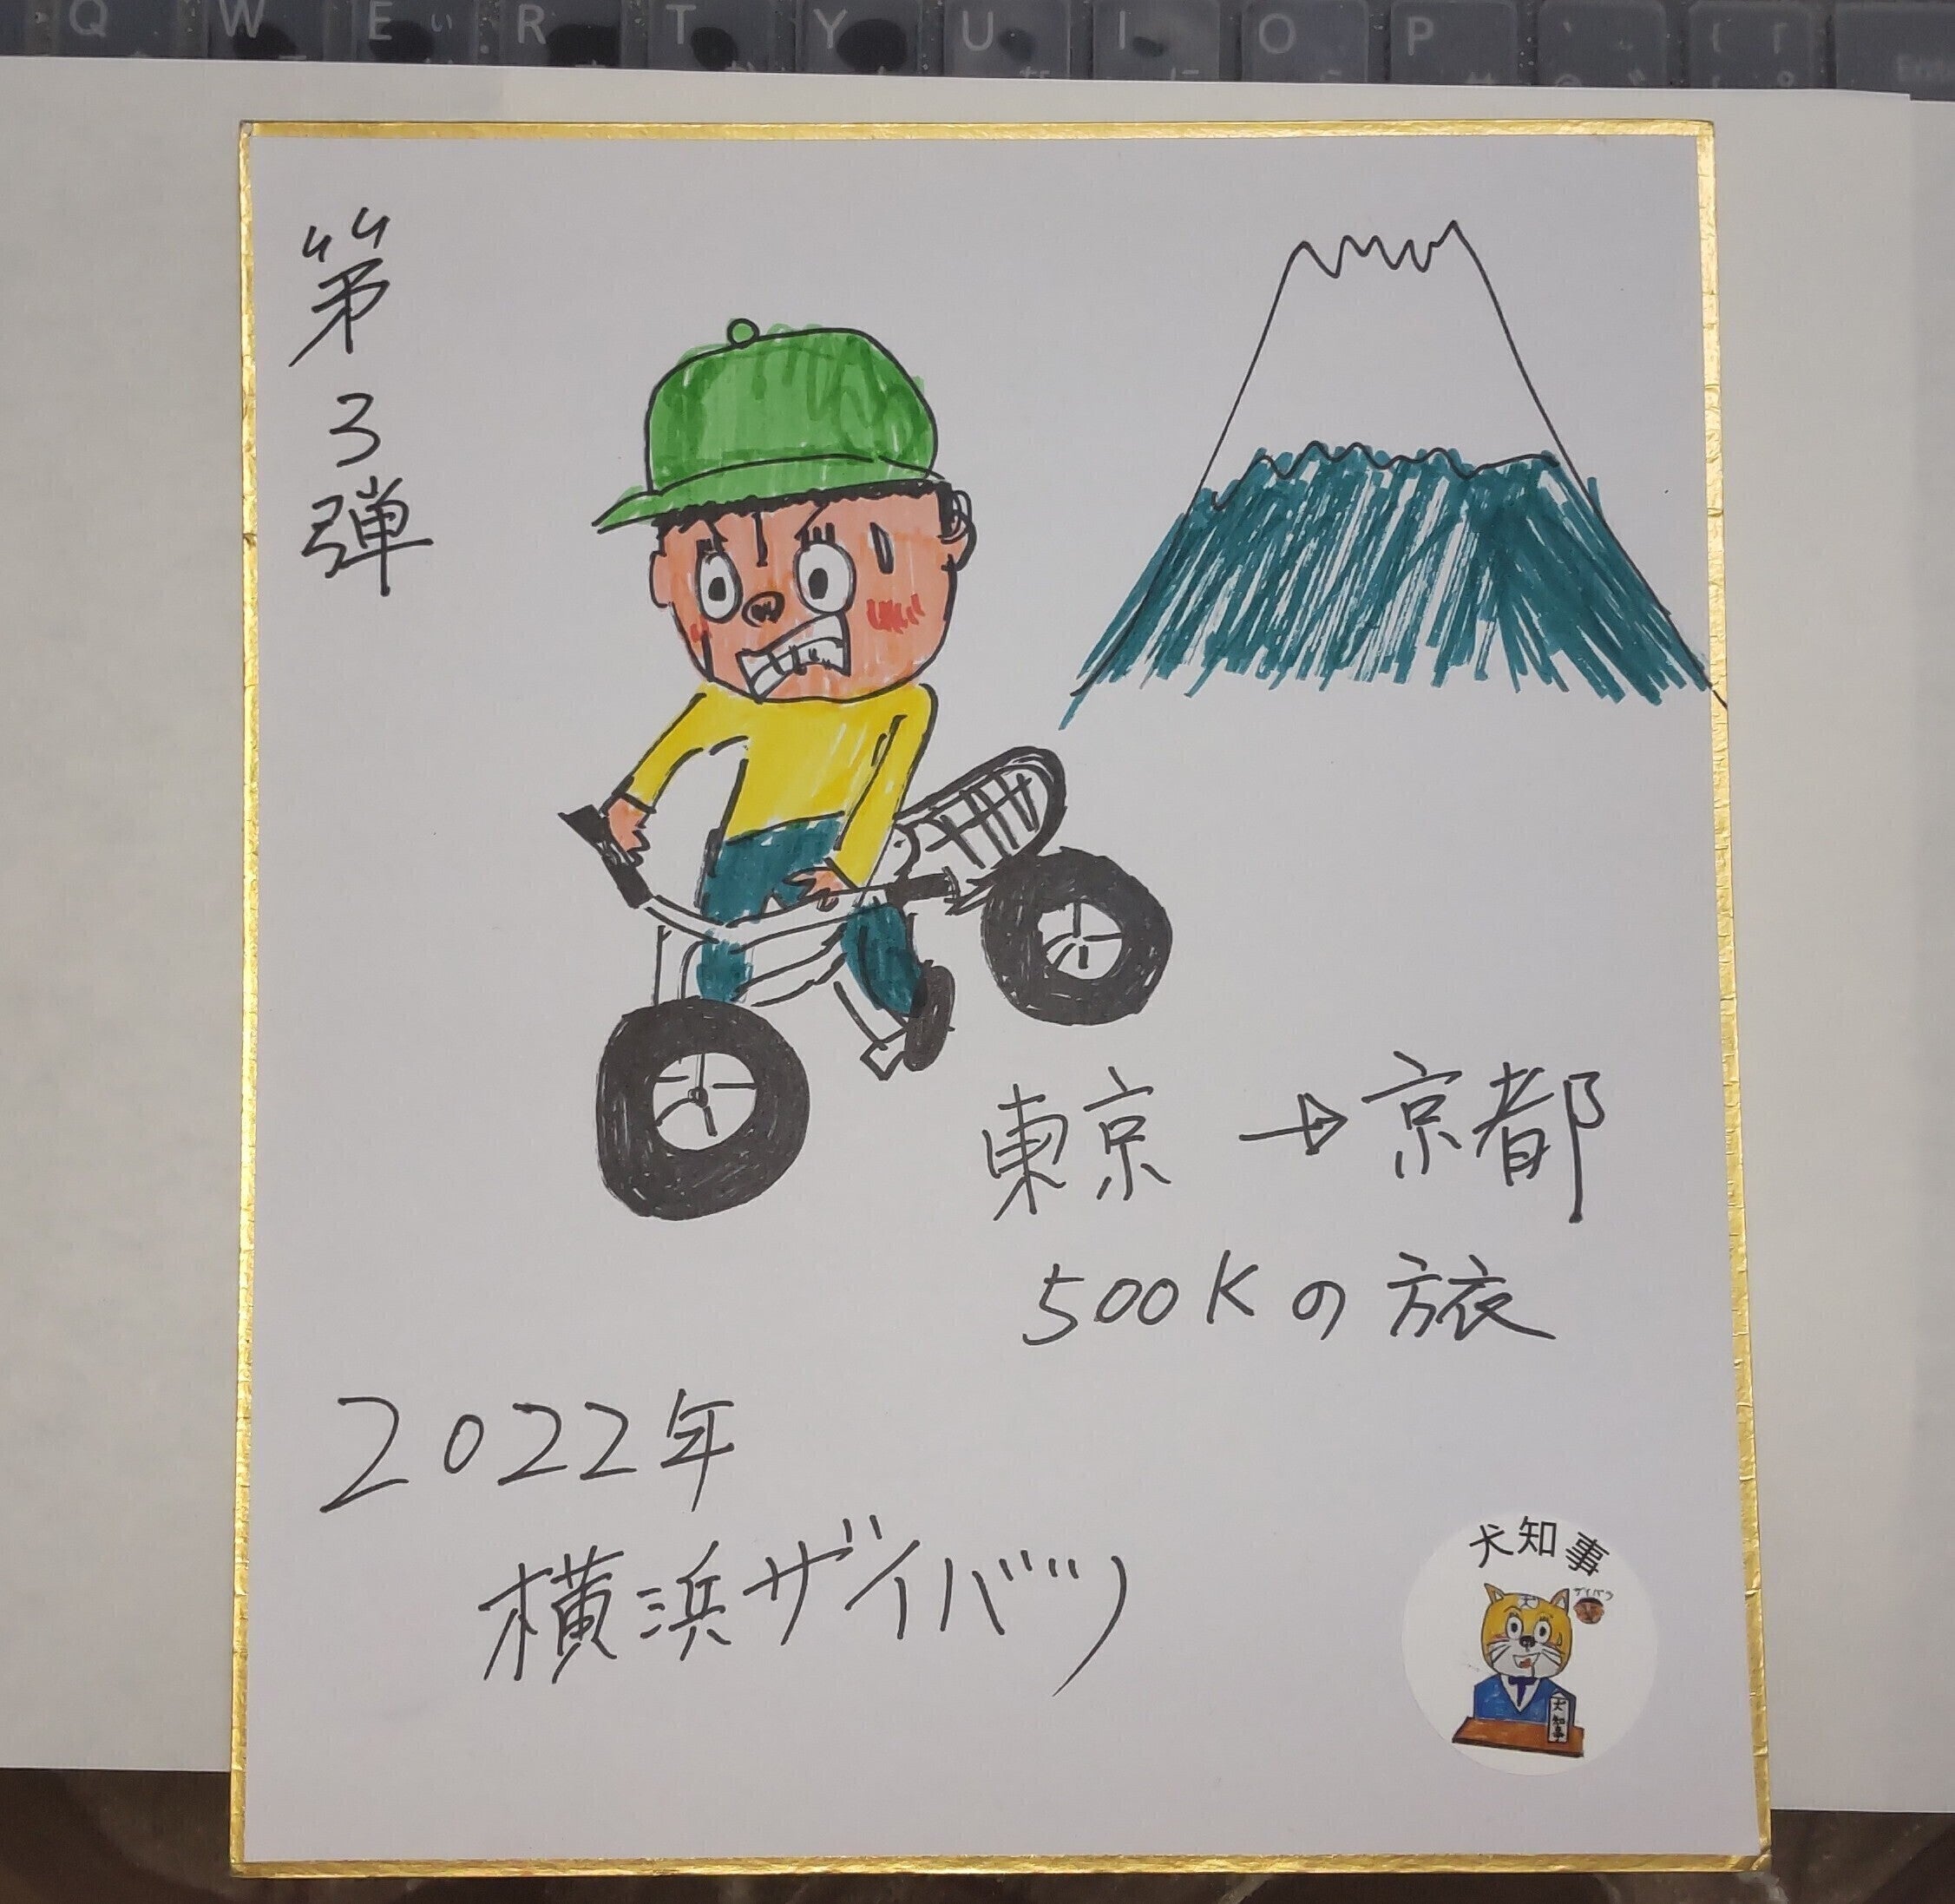 Q W E R T Y U I O P
第3弾
東京→京都
500Kの旅
2022年
横浜ザイバツ
犬知事
ザイバツ
犬知事